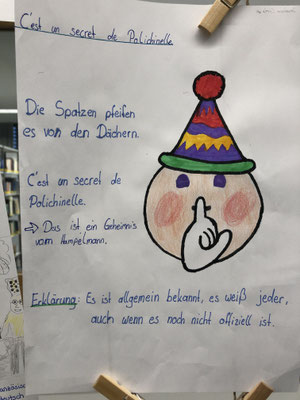 C'est un secret de Polichinelle.
Die Spatzen pfeifen
es von den Dächern.
C'est un secret de
Polichinelle.
→ Das ist ein Geheimnis
vom Hampelmann.
Erklärung: Es ist allgemein bekannt, es weiß jeder,
auch wenn es noch nicht offiziell ist.